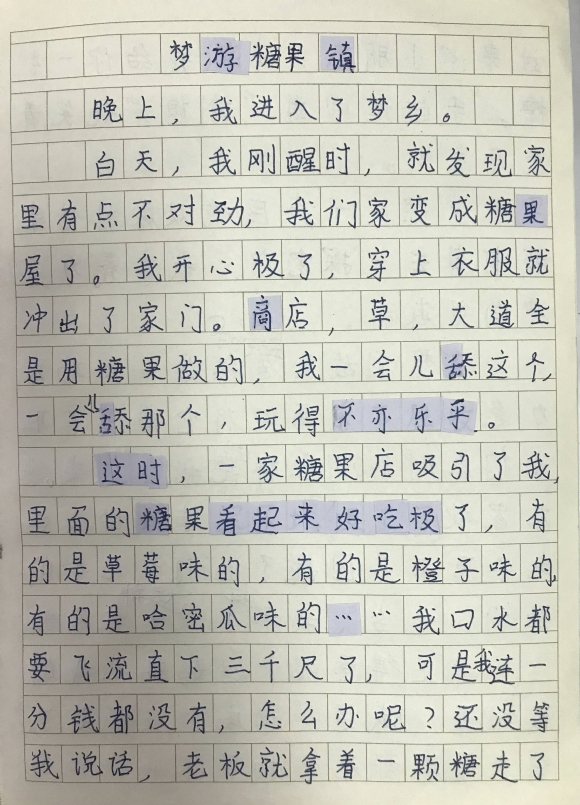 梦游糖果镇
晚上，我进入了梦乡。
白天，我刚醒时，就发现家
里有点不对劲，我们家变成糖果
屋了。我开心极了，穿上衣服就
冲出了家门。商店，草，大道全
是用糖果做的，我一会儿舔这个，
一会儿舔那个，玩得不亦乐乎。
这时，一家糖果店吸引了我，
里面的糖果看起来好吃极了，有
的是草莓味的，有的是橙子味的，
有的是哈密瓜味的……我口水都
要飞流直下三千尺了，可是我连一
分钱都没有，怎么办呢？还没等
我说话，老板就拿着一颗糖走了